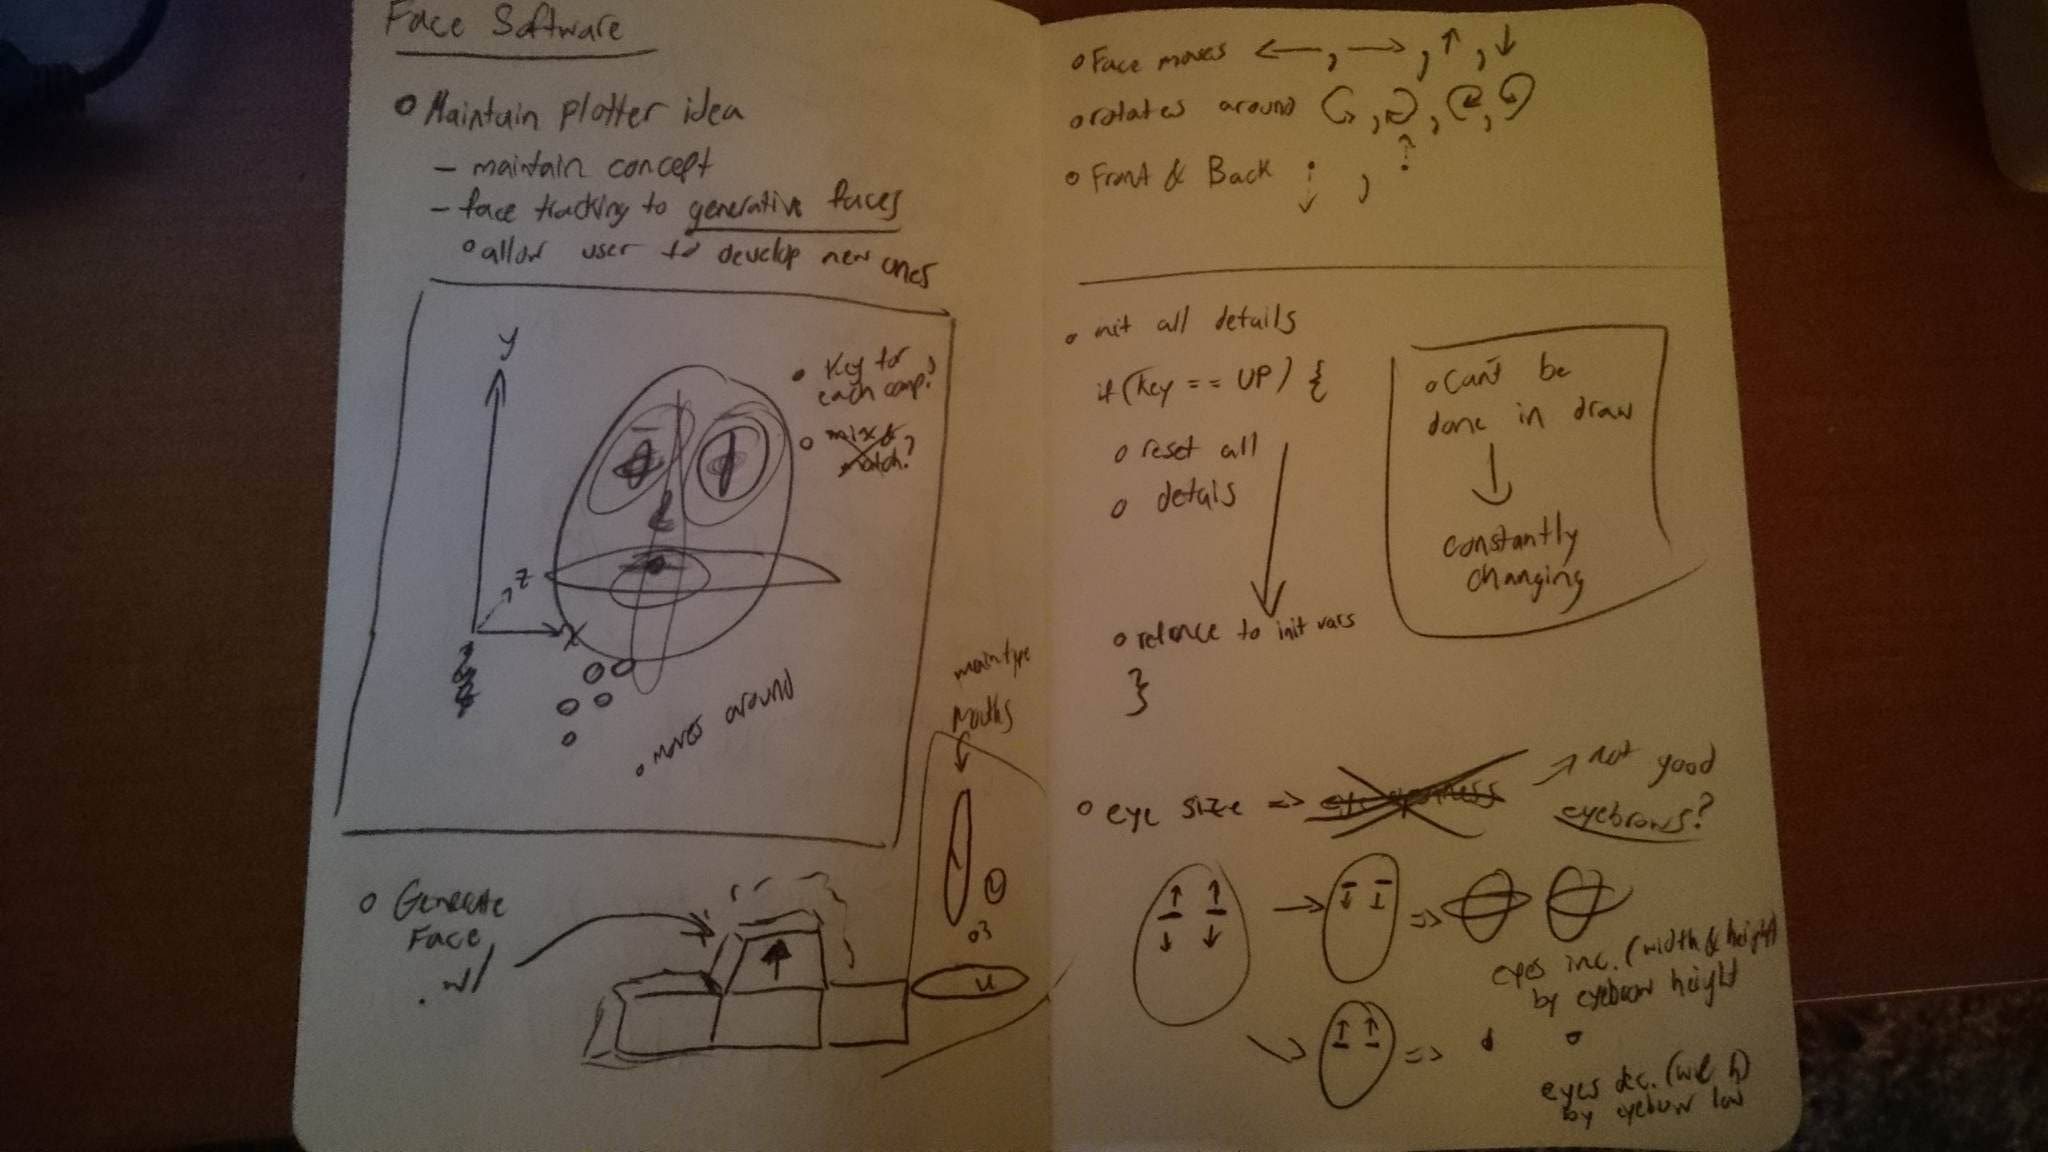 Face Software
Maintain plotter idea
- maintain concept
- face tracking to generative faces
allow user to develop new ones
y
z
x
Key for
each comp?
mix &
match?
moves around
Generate
Face
w/
main type
Mouths
Face moves ←, →, ↑, ↓
rotates around
?
Front & Back
init all details
if (key == UP) {
reset all
details
to init vars
}
Can't be
done in draw
↓
constantly
changing
eye size =>
not good
eyebrows?
eyes inc. (width & height)
by eyebrow height
eyes dec. (w & h)
by eyebrow low